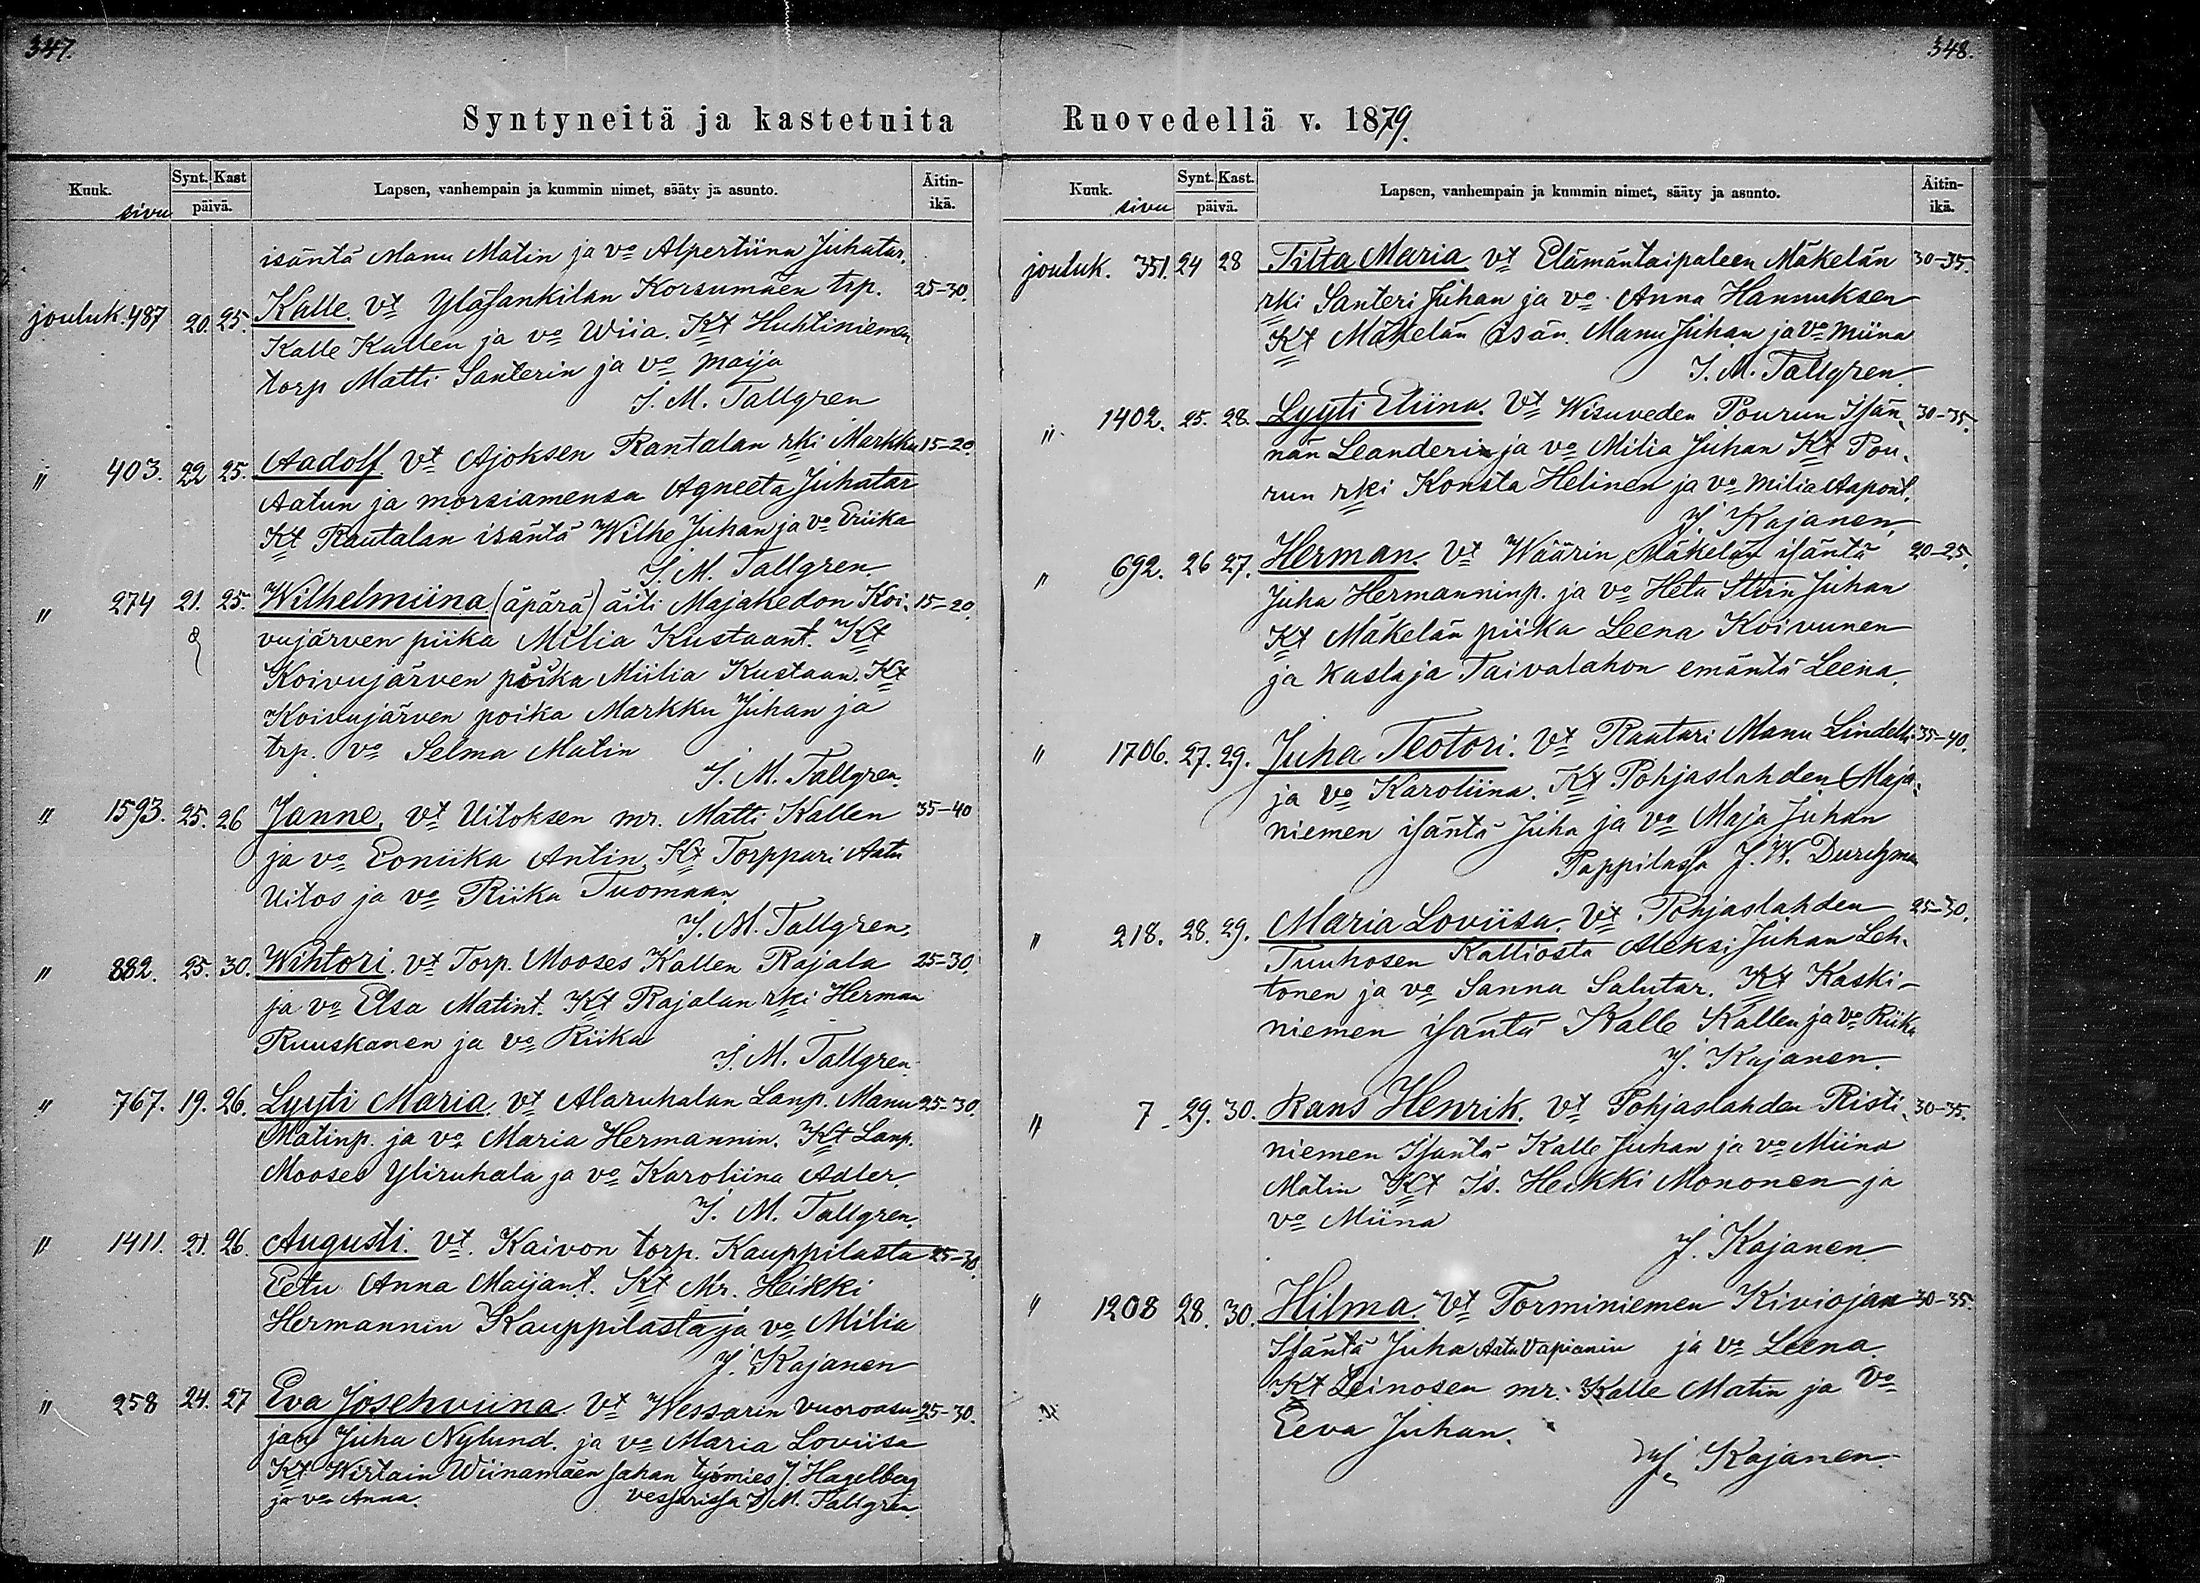 347.
Syntyneitä ja kastetuita
Kuuk. sivu
Synt. Kast
päivä.
Lapsen, vanhempain ja kummin nimet, sääty ja asunto.
Äitin-
ikä.
isäntä Manu Matin ja vo Alpertiina Juhatar.
jouluk. 487 20. 25. Kalle. vt Yläsankilan Korsumäen trp. 25-30.
Kalle Kallen ja vo Wiia. Kt Huhtiniemen
torp Matti Santerin ja vo Maija
J. M. Tallgren
" 403. 22 25. Aadolf vt Ajoksen Rantalan rki Markku 15-20
Aatun ja morsiamensa Agneeta Juhatar
Kt Rautalan isäntä Wilhe Juhan ja vo Eriika
J. M. Tallgren.
" 274 21. 25. Wilhelmiina (äpärä) äiti Majakedon Koi- 15-20.
vujärven piika Milia Kustaant. Kt
Koivujärven piika Miilia Kustaan. Kt
Koivujärven poika Markku Juhan ja
trp. vo Selma Matin
J. M. Tallgren.
" 1593. 25. 26 Janne, vt Uitoksen mr. Matti Kallen 35-40
ja vo Eoniika Antin. Kt Torppari Aatu
Uitos ja vo Riika Tuomaan
J. M. Tallgren.
" 882. 25. 30. Wihtori. vt Torp. Mooses Kallen Rajala 25-30.
ja vo Elsa Matint. Kt Rajalan rki Herman
Ruuskanen ja vo Riika
J. M. Tallgren.
" 767. 19. 26. Lyyti Maria. vt Alaruhalan Lanp. Manu 25-30.
Matinp. ja vo Maria Hermannin. Kt Lanp.
Mooses Yliruhala ja vo Karoliina Adler.
J. M. Tallgren.
" 1411. 21. 26. Augusti. vt. Kaivon torp. Kauppilasta 25-30.
Eetu Anna Maijant. Kt Mr. Heikki
Hermannin Kauppilasta ja vo Milia
J. Kajanen
" 258 24. 27 Eva Josehviina. vt Wessarin vuoroasu- 25-30.
jan Juha Nylund. ja vo Maria Loviisa
Kt Wirtain Wiinamäen Jahan työmies J. Hagelberg
ja vo Anna. Vessarissa J. M. Tallgren.
348.
Ruovedellä v. 1879.
Kuuk. sivu
Synt. Kast.
päivä.
Lapsen, vanhempain ja kummin nimet, sääty ja asunto.
Äitin-
ikä.
jouluk. 351. 24 28 Tilta Maria. vt Elämäntaipaleen Mäkelän 30-35.
rki Santeri Juhan ja vo Anna Hannuksen
Kt Mäkelän isän. Manu Juhan ja vo Miina
J. M. Tallgren.
" 1402. 25. 28. Lyyti Eliina. vt Wisuveden Pourun Isän- 30-35.
nän Leanderin ja vo Milia Juhan Kt Pou-
run rki Konsta Helinen ja vo Milia Aapont.
J. Kajanen.
" 692. 26 27. Herman. vt Wäärin Mäkelän isäntä 20-25.
Juha Hermanninp. ja vo Heta Stiin Juhan
Kt Mäkelän piika Leena Koivunen
ja kastaja Taivalahon emäntä Leena.
" 1706. 27. 29. Juha Teotori. vt Räätäri Manu Lindell 35-40.
ja vo Karoliina. Kt Pohjaslahden Maja-
niemen isäntä Juha ja vo Maja Juhan
Pappilassa J. W. Durchman
" 218. 28. 29. Maria Loviisa. vt Pohjaslahden 25-30.
Tuuhosen Kalliosta Aleksi Juhan Leh-
tonen ja vo Sanna Salutar. Kt Kaski-
niemen isäntä Kalle Kallen ja vo Riika
J. Kajanen.
" 7 29. 30. Hans Henrik. vt Pohjaslahden Risti- 30-35.
niemen Isäntä Kalle Juhan ja vo Miina
Matin Kt Is. Heikki Mononen ja
vo Miina
J. Kajanen
" 1208 28. 30. Hilma. vt Torminiemen Kiviojan 30-35.
Isäntä Juha Aatu Vapianin ja vo Leena.
Kt Leinosen mr. Kalle Matin ja vo
Eeva Juhan.
J. Kajanen.